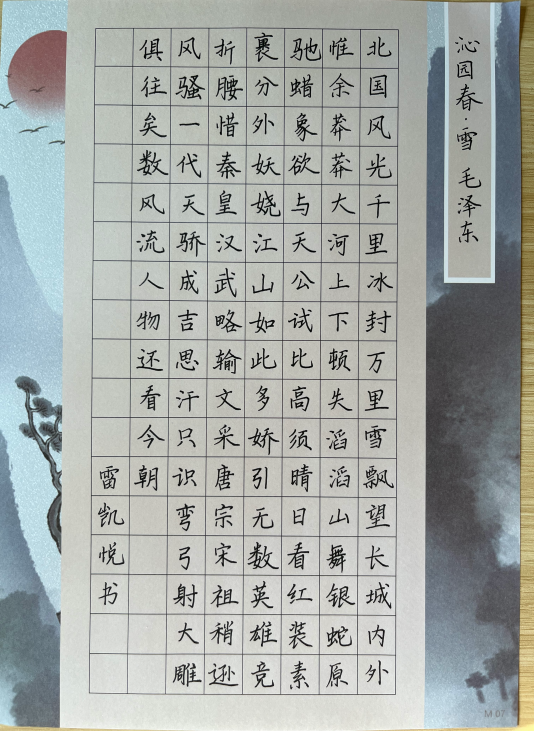 沁园春·雪 毛泽东
北国风光千里冰封万里雪飘望长城内外
惟余莽莽大河上下顿失滔滔山舞银蛇原
驰蜡象欲与天公试比高须晴日看红装素
裹分外妖娆江山如此多娇引无数英雄竞
折腰惜秦皇汉武略输文采唐宗宋祖稍逊
风骚一代天骄成吉思汗只识弯弓射大雕
俱往矣数风流人物还看今朝
雷凯悦书
M 07